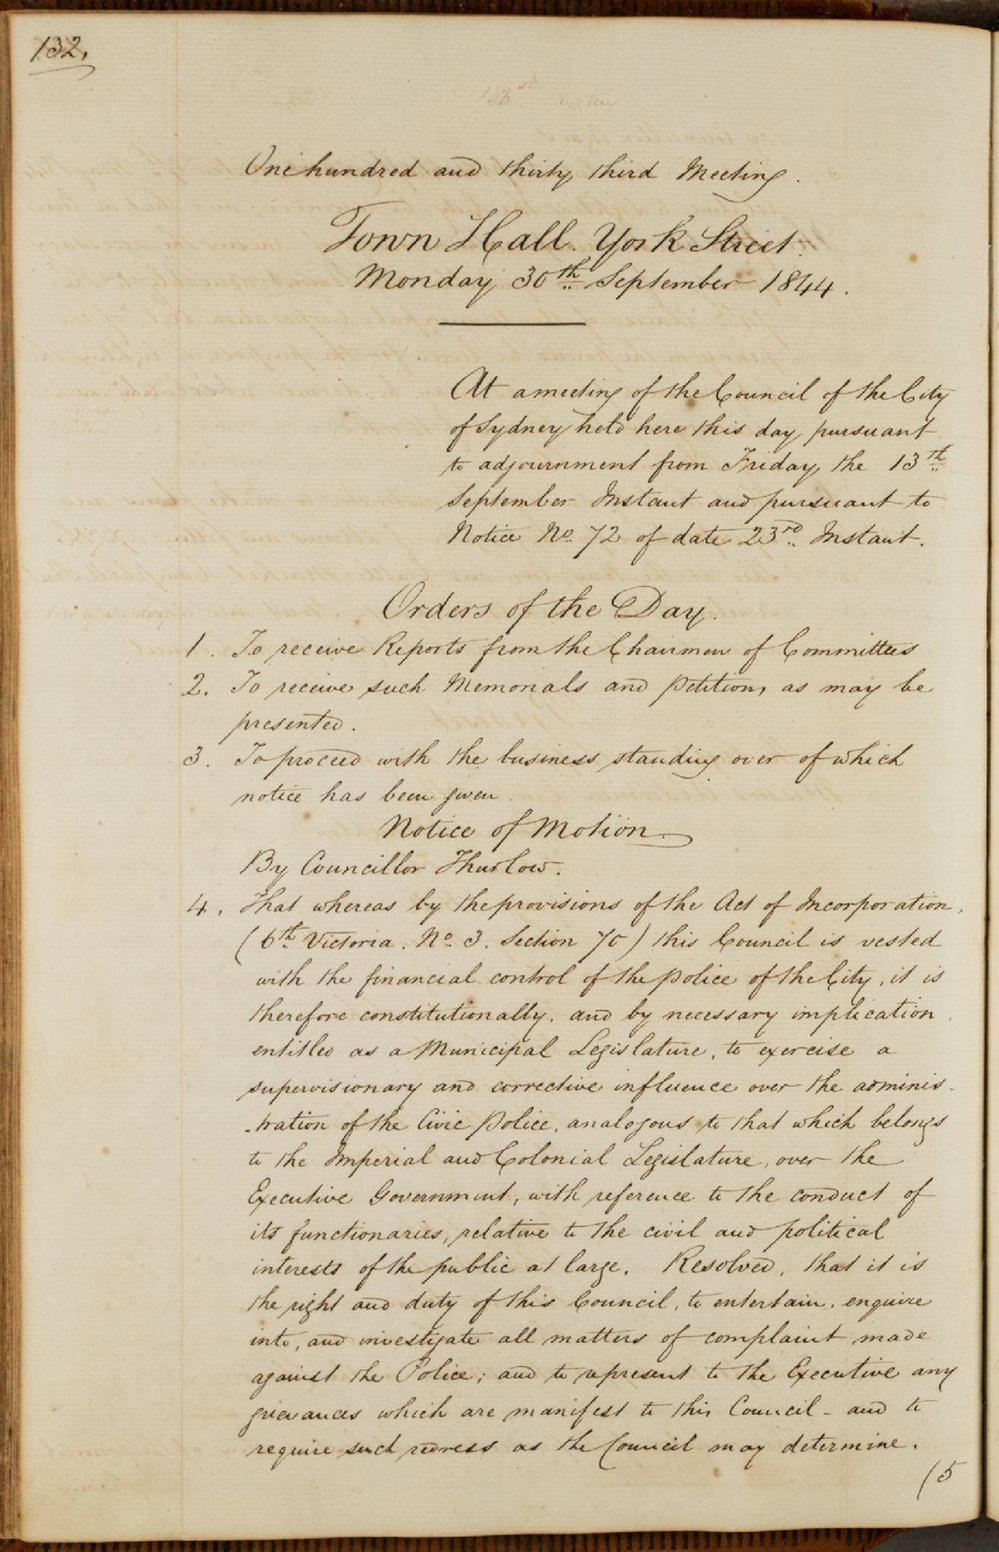 132.
One hundred and thirty third Meeting.
Town Hall. York Street.
Monday 30th September 1844.
At a meeting of the Council of the City
of Sydney held here this day, pursuant
to adjournment from Friday, the 13th
September Instant and pursuant to
Notice No. 72 of date 23rd Instant.
Orders of the Day.
1. To receive Reports from the Chairmen of Committees
2. To receive such Memorials and Petitions as may be
presented.
3. To proceed with the business standing over of which
notice has been given.
Notice of Motion.
By Councillor Thurlow.
4. That whereas by the provisions of the Act of Incorporation,
(6th Victoria. No. 3. Section 70) this Council is vested
with the financial control of the Police of the City, it is
therefore constitutionally, and by necessary implication
entitled as a Municipal Legislature, to exercise a
supervisionary and corrective influence over the adminis-
-tration of the Civic Police, analogous to that which belongs
to the Imperial and Colonial Legislature, over the
Executive Government, with reference to the conduct of
its functionaries, relative to the civil and political
interests of the public at large. Resolved, that it is
the right and duty of this Council, to entertain, enquire
into, and investigate all matters of complaint made
against the Police; and to represent to the Executive any
grievances which are manifest to this Council - and to
require such redress as the Council may determine.
(5